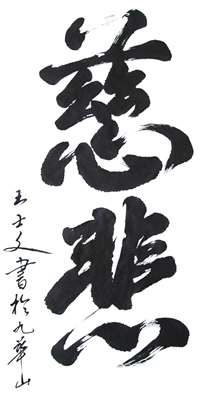 慈悲
王士文書於九華山